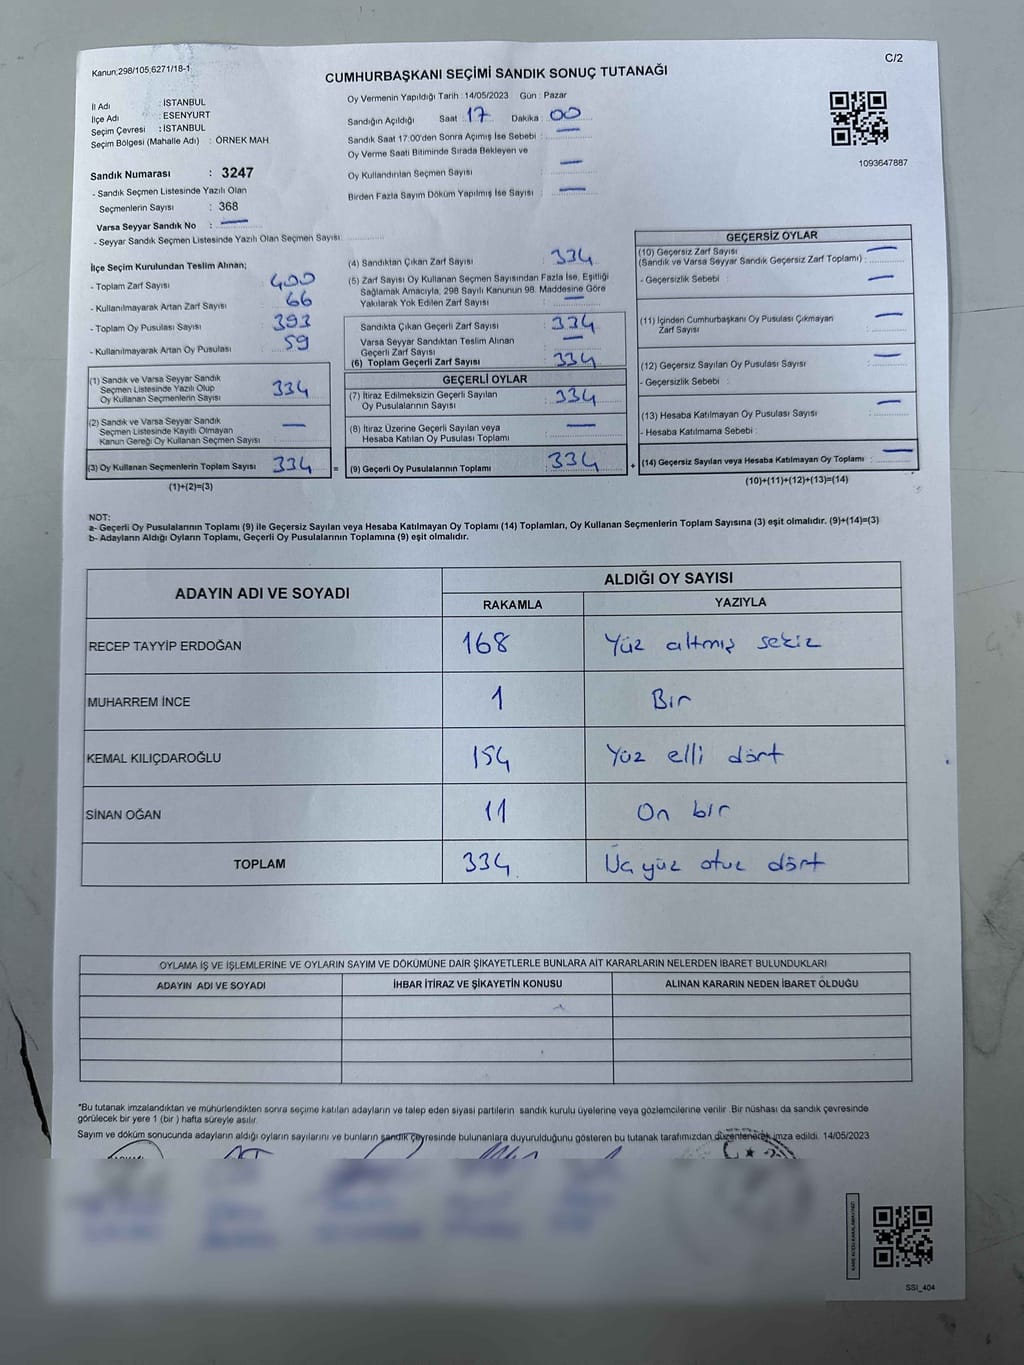 Kanun;298/105,6271/18-1
C/2
CUMHURBAŞKANI SEÇİMİ SANDIK SONUÇ TUTANAĞI
İl Adı : İSTANBUL
İlçe Adı : ESENYURT
Seçim Çevresi : İSTANBUL
Seçim Bölgesi (Mahalle Adı) : ÖRNEK MAH
Sandık Numarası : 3247
- Sandık Seçmen Listesinde Yazılı Olan
Seçmenlerin Sayısı : 368
Varsa Seyyar Sandık No : —
- Seyyar Sandık Seçmen Listesinde Yazılı Olan Seçmen Sayısı:
Oy Vermenin Yapıldığı Tarih : 14/05/2023 Gün : Pazar
Sandığın Açıldığı Saat : 17 Dakika : 00
Sandık Saat 17:00'den Sonra Açımış İse Sebebi : —
Oy Verme Saati Bitiminde Sırada Bekleyen ve
Oy Kullandırılan Seçmen Sayısı : —
Birden Fazla Sayım Döküm Yapılmış İse Sayısı : —
1093647887
İlçe Seçim Kurulundan Teslim Alınan;
- Toplam Zarf Sayısı : 400
- Kullanılmayarak Artan Zarf Sayısı : 66
- Toplam Oy Pusulası Sayısı : 393
- Kullanılmayarak Artan Oy Pusulası : 59
(1) Sandık ve Varsa Seyyar Sandık
Seçmen Listesinde Yazılı Olup
Oy Kullanan Seçmenlerin Sayısı : 334
(2) Sandık ve Varsa Seyyar Sandık
Seçmen Listesinde Kayıtlı Olmayan
Kanun Gereği Oy Kullanan Seçmen Sayısı : —
(3) Oy Kullanan Seçmenlerin Toplam Sayısı : 334
(1)+(2)=(3)
(4) Sandıktan Çıkan Zarf Sayısı : 334
(5) Zarf Sayısı Oy Kullanan Seçmen Sayısından Fazla İse, Eşitliği
Sağlamak Amacıyla, 298 Sayılı Kanunun 98. Maddesine Göre
Yakılarak Yok Edilen Zarf Sayısı : —
Sandıkta Çıkan Geçerli Zarf Sayısı : 334
Varsa Seyyar Sandıktan Teslim Alınan
Geçerli Zarf Sayısı : —
(6) Toplam Geçerli Zarf Sayısı : 334
GEÇERLİ OYLAR
(7) İtiraz Edilmeksizin Geçerli Sayılan
Oy Pusulalarının Sayısı : 334
(8) İtiraz Üzerine Geçerli Sayılan veya
Hesaba Katılan Oy Pusulası Toplamı : —
= (9) Geçerli Oy Pusulalarının Toplamı : 334
GEÇERSİZ OYLAR
(10) Geçersiz Zarf Sayısı
(Sandık ve Varsa Seyyar Sandık Geçersiz Zarf Toplamı) : —
- Geçersizlik Sebebi : —
(11) İçinden Cumhurbaşkanı Oy Pusulası Çıkmayan
Zarf Sayısı : —
(12) Geçersiz Sayılan Oy Pusulası Sayısı : —
- Geçersizlik Sebebi :
(13) Hesaba Katılmayan Oy Pusulası Sayısı : —
- Hesaba Katılmama Sebebi :
+ (14) Geçersiz Sayılan veya Hesaba Katılmayan Oy Toplamı : —
(10)+(11)+(12)+(13)=(14)
NOT:
a- Geçerli Oy Pusulalarının Toplamı (9) ile Geçersiz Sayılan veya Hesaba Katılmayan Oy Toplamı (14) Toplamları, Oy Kullanan Seçmenlerin Toplam Sayısına (3) eşit olmalıdır. (9)+(14)=(3)
b- Adayların Aldığı Oyların Toplamı, Geçerli Oy Pusulalarının Toplamına (9) eşit olmalıdır.
ADAYIN ADI VE SOYADI ALDIĞI OY SAYISI
RAKAMLA YAZIYLA
RECEP TAYYİP ERDOĞAN 168 Yüz altmış sekiz
MUHARREM İNCE 1 Bir
KEMAL KILIÇDAROĞLU 154 Yüz elli dört
SİNAN OĞAN 11 On bir
TOPLAM 334 Üç yüz otuz dört
OYLAMA İŞ VE İŞLEMLERİNE VE OYLARIN SAYIM VE DÖKÜMÜNE DAİR ŞİKAYETLERLE BUNLARA AİT KARARLARIN NELERDEN İBARET BULUNDUKLARI
ADAYIN ADI VE SOYADI İHBAR İTİRAZ VE ŞİKAYETİN KONUSU ALINAN KARARIN NEDEN İBARET OLDUĞU
*Bu tutanak imzalandıktan ve mühürlendikten sonra seçime katılan adayların ve talep eden siyasi partilerin sandık kurulu üyelerine veya gözlemcilerine verilir .Bir nüshası da sandık çevresinde
görülecek bir yere 1 (bir ) hafta süreyle asılır.
Sayım ve döküm sonucunda adayların aldığı oyların sayılarını ve bunların sandık çevresinde bulunanlara duyurulduğunu gösteren bu tutanak tarafımızdan düzenlenerek imza edildi. 14/05/2023
SSI_404